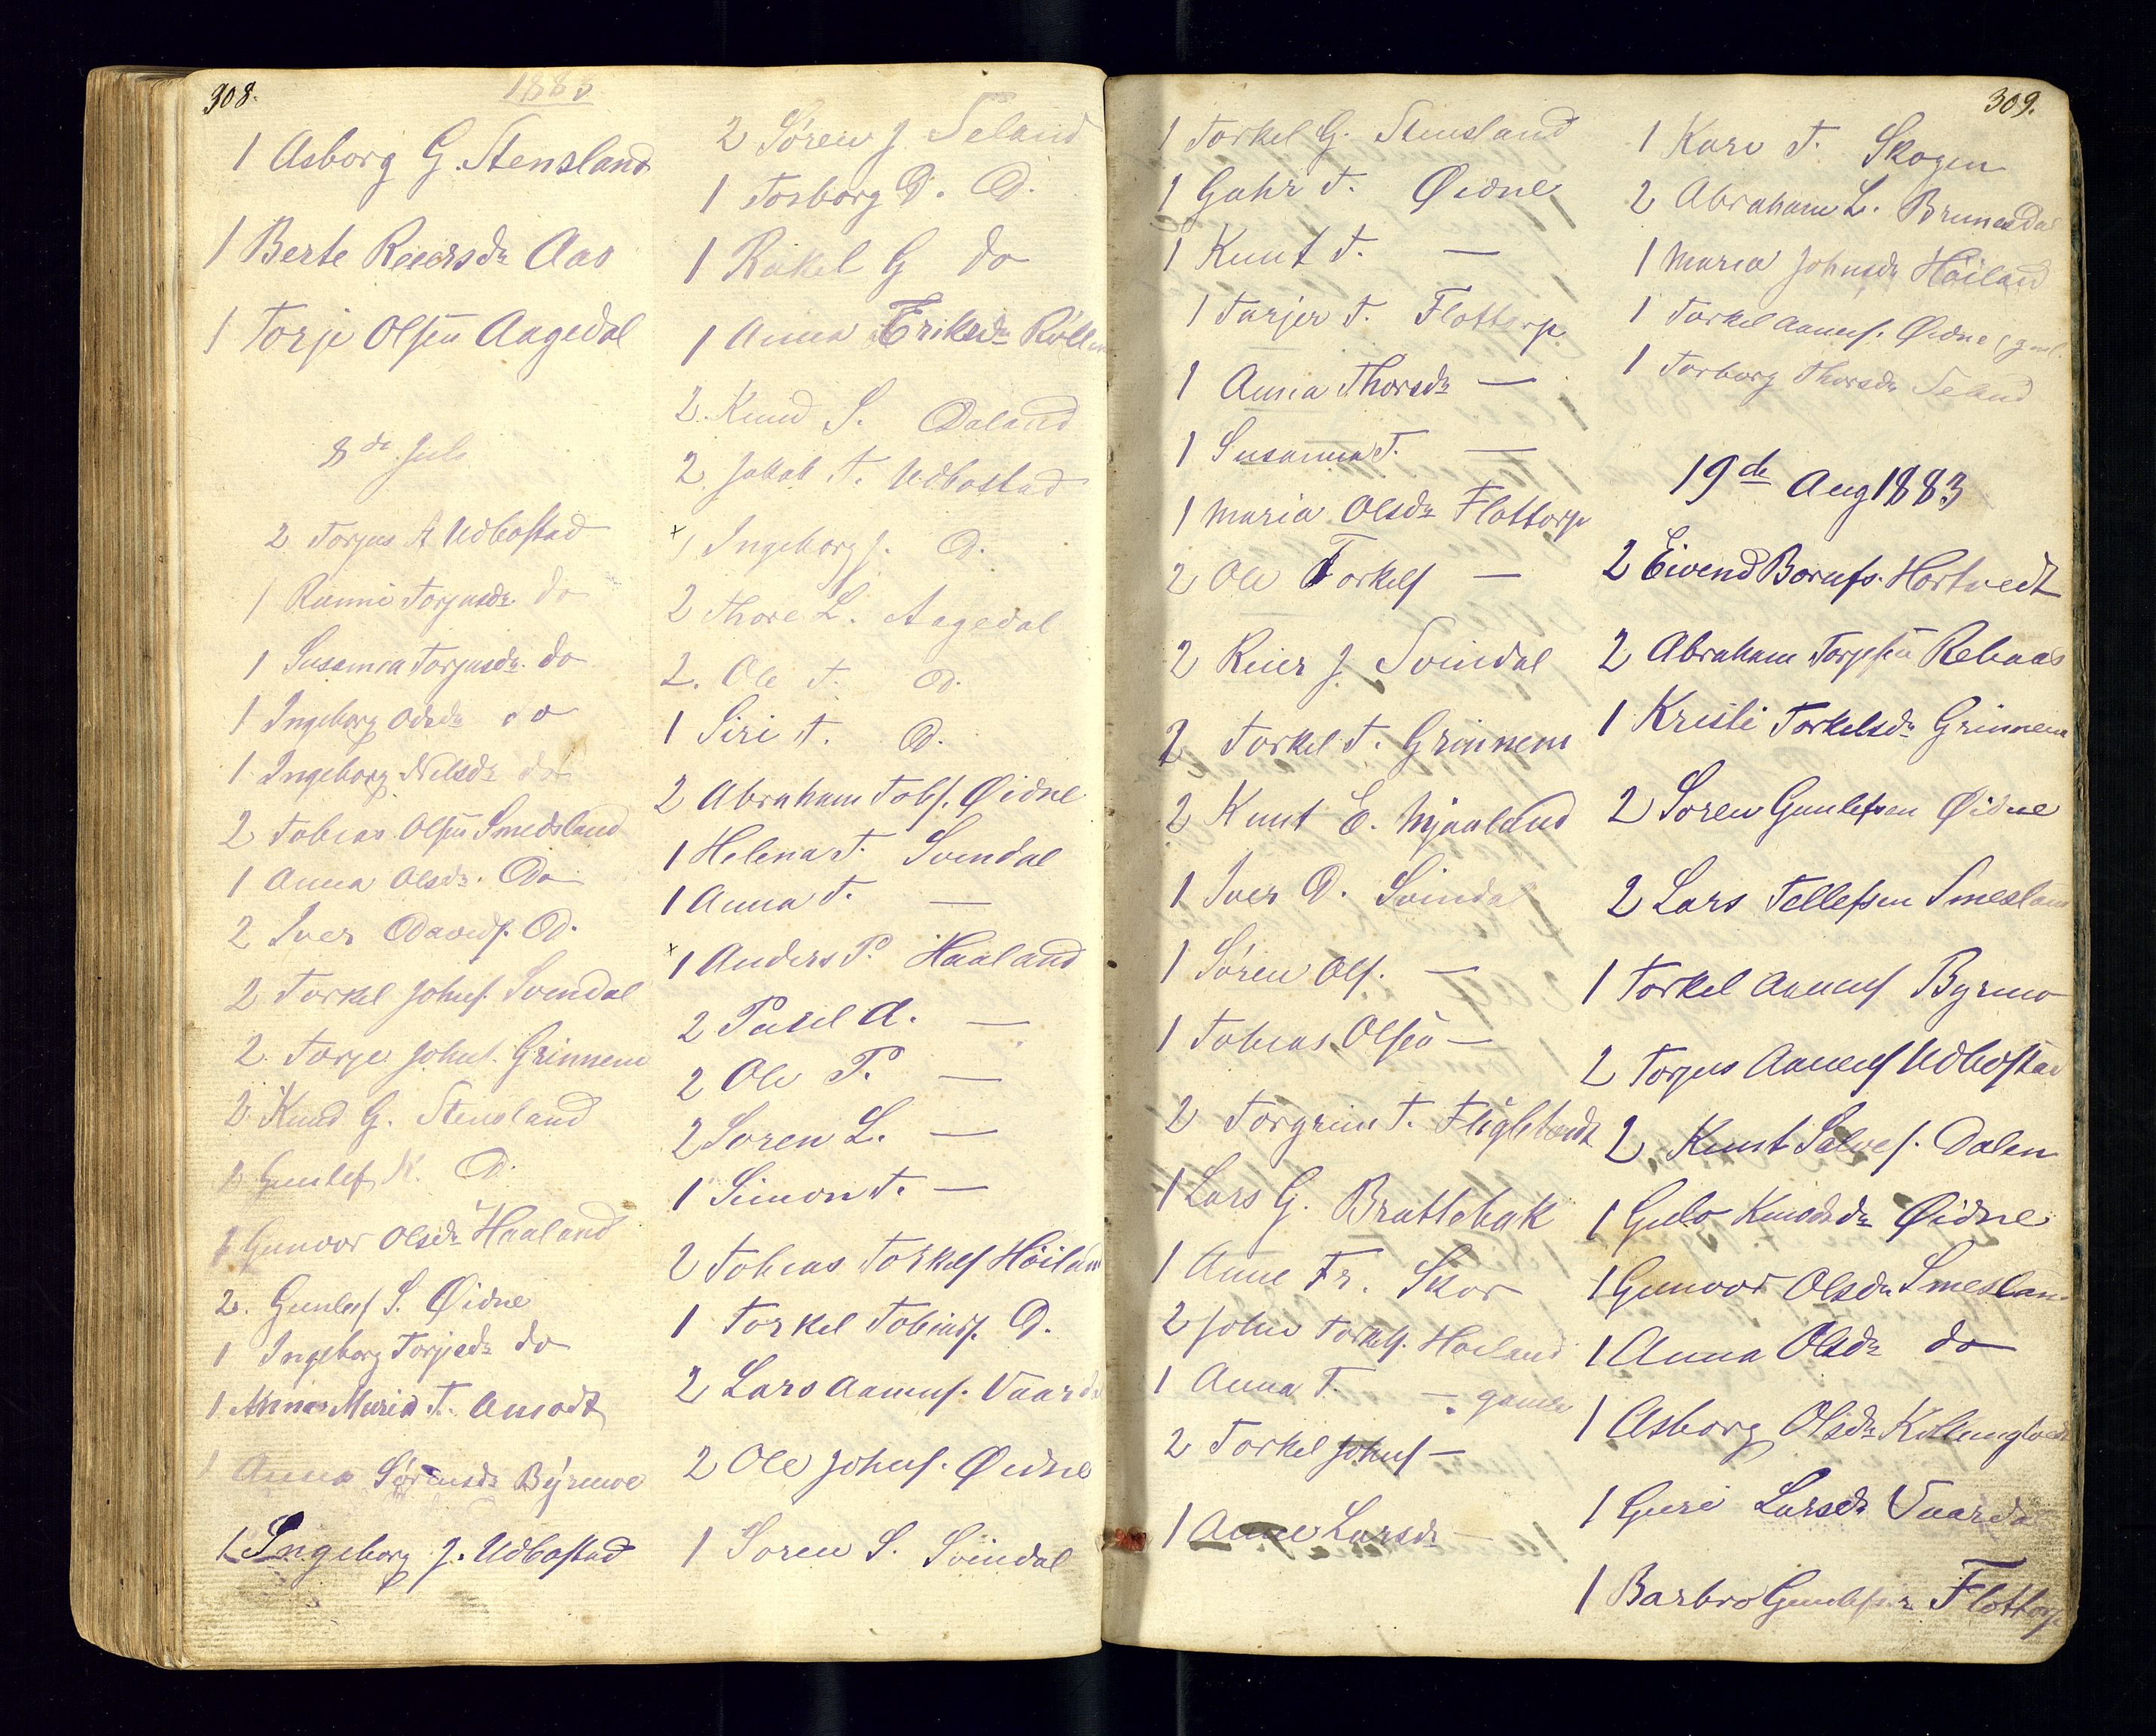 308.
1883
1 Asborg G. Stensland
1 Berte Reiersdr Aas
1 Torje Olsen Aagedal
8de Juli
2 Torjus A Udbostad
1 Rannei Torjusdr. do
1 Susanna Torjusdr. do
1 Ingeborg Odsdr do
1 Ingeborg Nilsdr do
2 Tobias Olsen Smedsland
1 Anna Olsdr. Do
2 Iver Davids. D.
2 Torkel Johns. Svindal
2. Torje Johns. Grinnem
2. Knud G. Stensland
Gunlef K. D.
1 Gunvor Olsdr Haaland
2. Gunlefs S. Øidne
1 Ingeborg Torjedr do
1 Anna Maria T. Amodt
1 Anna Sørensdr Byrmoe
1 Ingeborg J. Udbostad
2 Søren J Seland
1 Torborg D. D.
1 Rakel G do
1 Anna Eriksdr
2. Knud S. Daland
2. Jakob T. Udbostad
x 1 Ingeborg J. D.
2 Thore L. Aagedal
2. Ole T. D.
1 Siri T. D.
2 Abraham Tobs. Øidne
1 Helena T. Svindal
1 Anna T. —
x 1 Anders P. Haaland
2 Paul A. —
2 Ole P. —
2 Soren L. —
1 Simon T. —
2 Tobias Torkels Høiland
1 Torkel Tobias. D.
2 Lars Aanens. Vaardal
2 Ole Johns. Øidne
1 Soren S. Svindal
309.
1 Torkel G. Stensland
1 Guhr T. Øidne
1 Knut T. —
1 Tarjer T. Flottorp
1 Anna Thorsdr —
1 Susanna T. —
1 Maria Olsdr Flottorp
2 Ole Torkels —
2 Reier J Svindal
2 Torkel T. Grinnem
2 Knut E. Mjaaland
1 Iver D. Svindal
1 Søren Ols. —
1 Tobias Olsen —
2 Torgrim T.
1 Lars G. Brattebak
1 Anne Fr. Skor
2 John Torkels. Høiland
1 Anna T. — gamle
2 Torkel Johns —
1 Anne Larsdr —
1 Kari T. Skogen
2 Abraham L. Brunesdal
1 Maria Johnsdr Høiland
1 Torkel Aanens. Øidne (gml.
1 Torborg Thorsdr Seland
19de Aug 1883
2 Eivend Bornfs. Hortvedt
2 Abraham Torjesen Rebaas
1 Kristi Torkelsdr Grinnem
2 Soren Gunlefsen Øidne
2 Lars Tellefsen Smesland
1 Torkel Aanens Byrmo
2 Torjus Aanens Udbostad
2 Knut Salves. Dalen
1 Gulo Knudsdr Øidne
1 Gunvor Olsdr Smesland
1 Anna Olsdr do
1 Asborg Olsdr
1 Guri Larsdr Vaardal
1 Barbro Gunlefsdr Flottorp